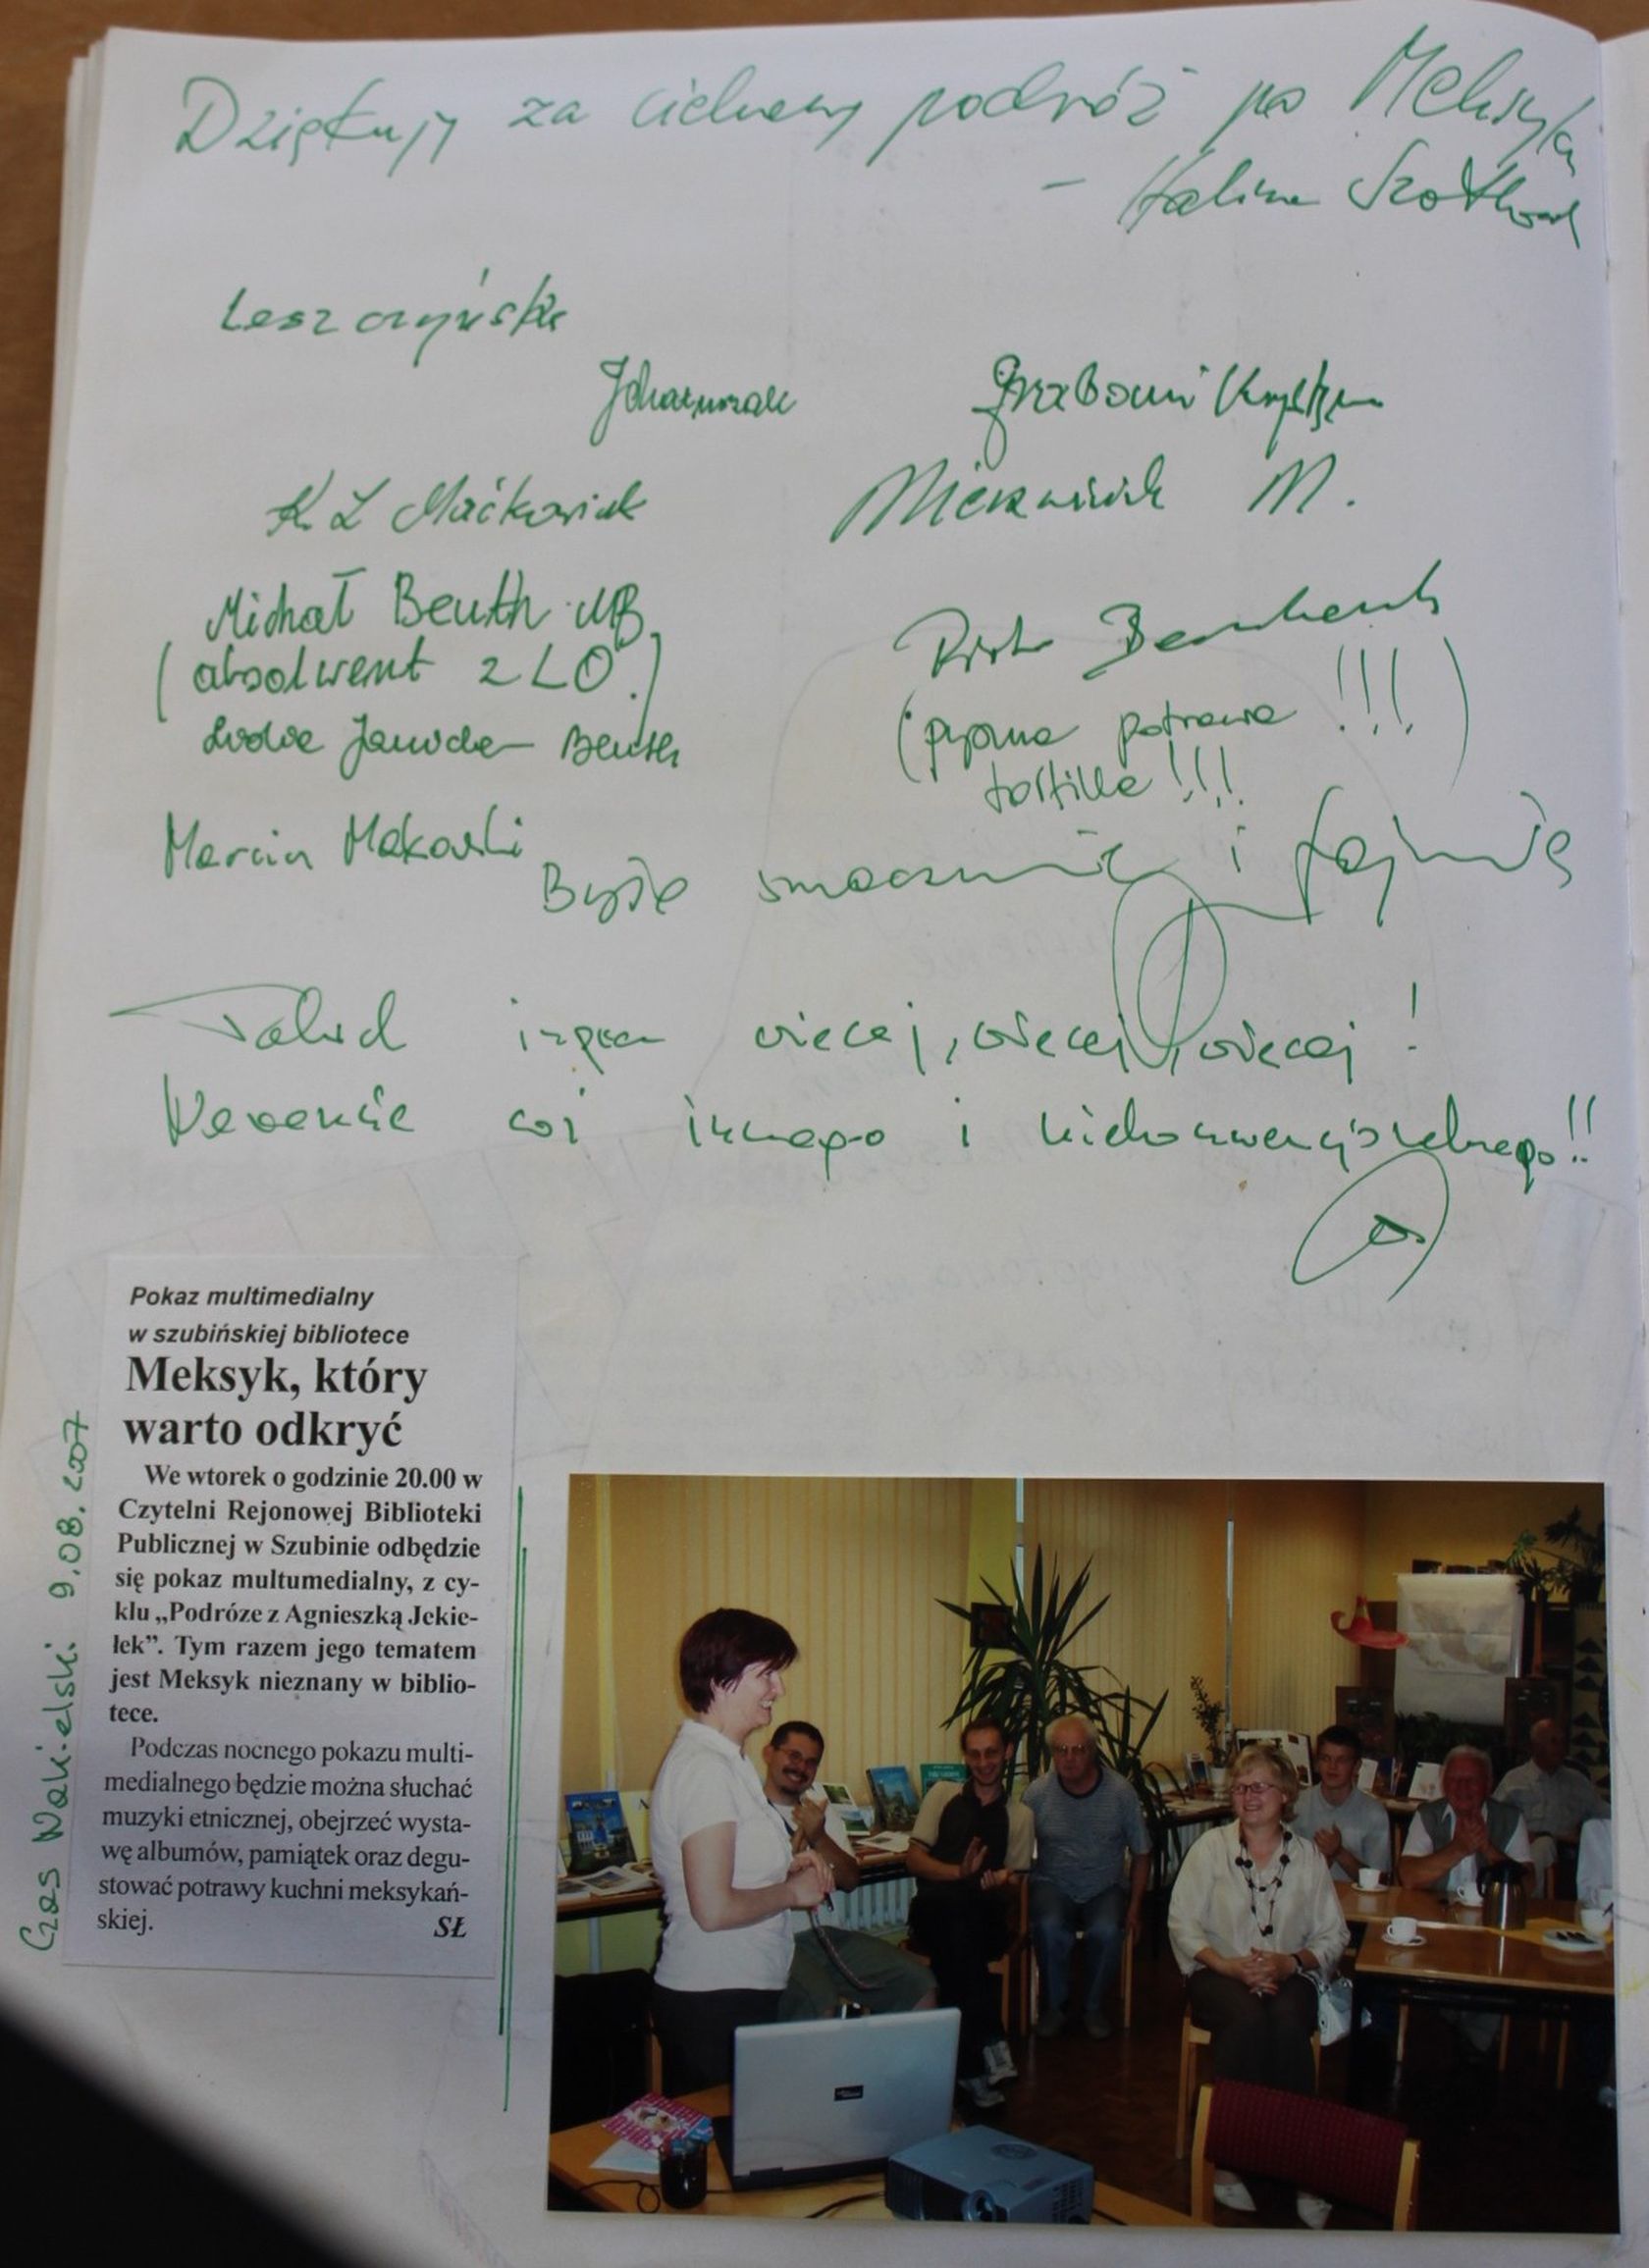 Dziękuję za ciekawą podróż po Meksyku
- Halina
Leszczyńska
K Z Maćkowiak
M.
Michał Beuth MB
(absolwent 2 LO.)
Beuth
Piotr
(pyszna potrawa !!!!)
tortilla !!!!
Marcin Makowski
Było smacznie i fajnie
więcej, więcej, więcej!
coś innego i niekonwencjonalnego!!
Pokaz multimedialny
w szubińskiej bibliotece
Meksyk, który
warto odkryć
We wtorek o godzinie 20.00 w
Czytelni Rejonowej Biblioteki
Publicznej w Szubinie odbędzie
się pokaz multumedialny, z cy-
klu „Podróze z Agnieszką Jekie-
łek”. Tym razem jego tematem
jest Meksyk nieznany w biblio-
tece.
Podczas nocnego pokazu multi-
medialnego będzie można słuchać
muzyki etnicznej, obejrzeć wysta-
wę albumów, pamiątek oraz degu-
stować potrawy kuchni meksykań-
skiej.
SŁ
Czas Nakielski 9.08.2007